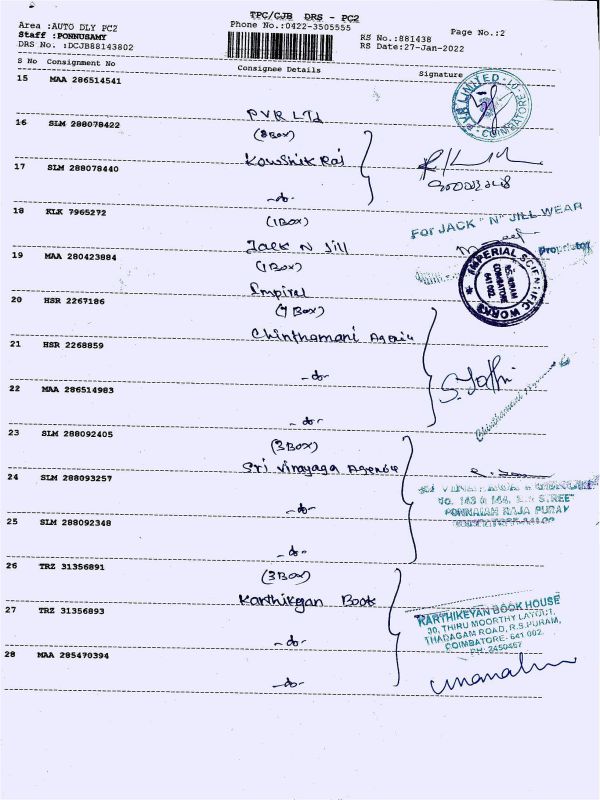 TPC/CJB DRS - PC2
Area :AUTO DLY PC2
Phone No.:0422-3505555
Page No.:2
Staff : PONNUSAMY
RS No.:881438
DRS No. :DCJB88143802
RS Date:27-Jan-2022
S No Consignment No Consignee Details Signature
15 MAA 286514541
PVR LTd
COIMBATORE
16 SLM 288078422
(8Box)
Kowshik Raj
17 SLM 288078440
-do-
18 KLK 7965272
(1Box)
For JACK "N" JILL WEAR
Jack N Jill
Proprietor
19 MAA 280423884
(1Box)
IMPERIAL SCIENTIFIC WORKS
COIMBATORE
641 002.
20 HSR 2267186
Chinthamani
21 HSR 2268859
-do-
22 MAA 286514983
-do-
Chinthamani
23 SLM 288092405
(3Box)
Sri Vinayaga
24 SLM 288093257
-do-
PONNAIAH RAJA PURAM
25 SLM 288092348
-do-
26 TRZ 31356891
(3Box)
Karthikgan Book
27 TRZ 31356893
-do-
KARTHIKEYAN BOOK HOUSE
30, THIRU MOORTHY LAYOUT,
THADAGAM ROAD, R.S.PURAM,
COIMBATORE- 641 002.
PH: 2450467
28 MAA 285470394
-do-